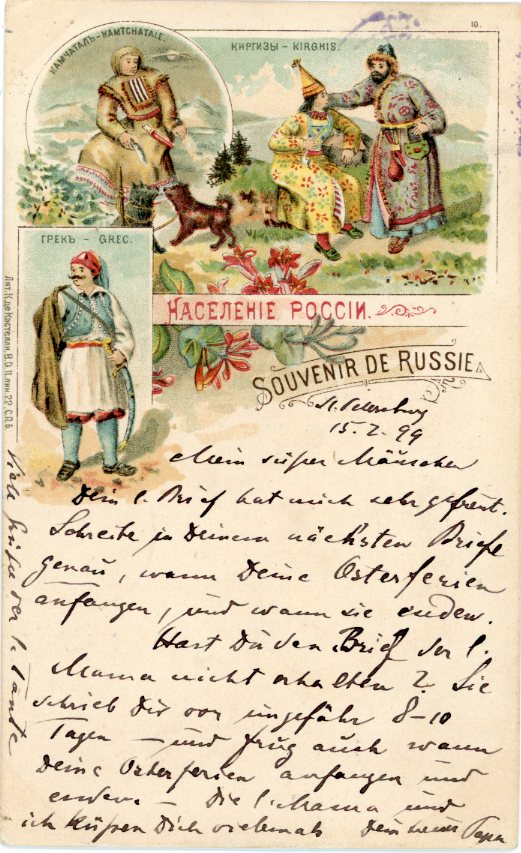 10.
КАМЧАТАЛЪ-KAMTCHATALE.
КИРГИЗЫ - KIRGHIS.
ГРЕКЪ - GREC.
НАСЕЛЕНІЕ РОССІИ.
SOUVENIR DE RUSSIE
Лит. К. де Кастелли, В.О. 11 лин. 22. С.П.Б.
St. Petersburg
15. 2. 99
Mein süßer Mäuschen
Dein l. Brief hat mich sehr gefreut.
Schreibe in Deinem nächsten Briefe
genau, wann Deine Osterferien
anfangen, und wann sie enden.
Hast Du den Brief der l.
Mama nicht erhalten? Sie
schrieb Dir vor ungefähr 8-10
Tagen – und frug auch wann
Deine Osterferien anfangen und
enden – Die l. Mama und
ich küssen Dich vielemals Dein Papa
Viele Grüße der l. Tante